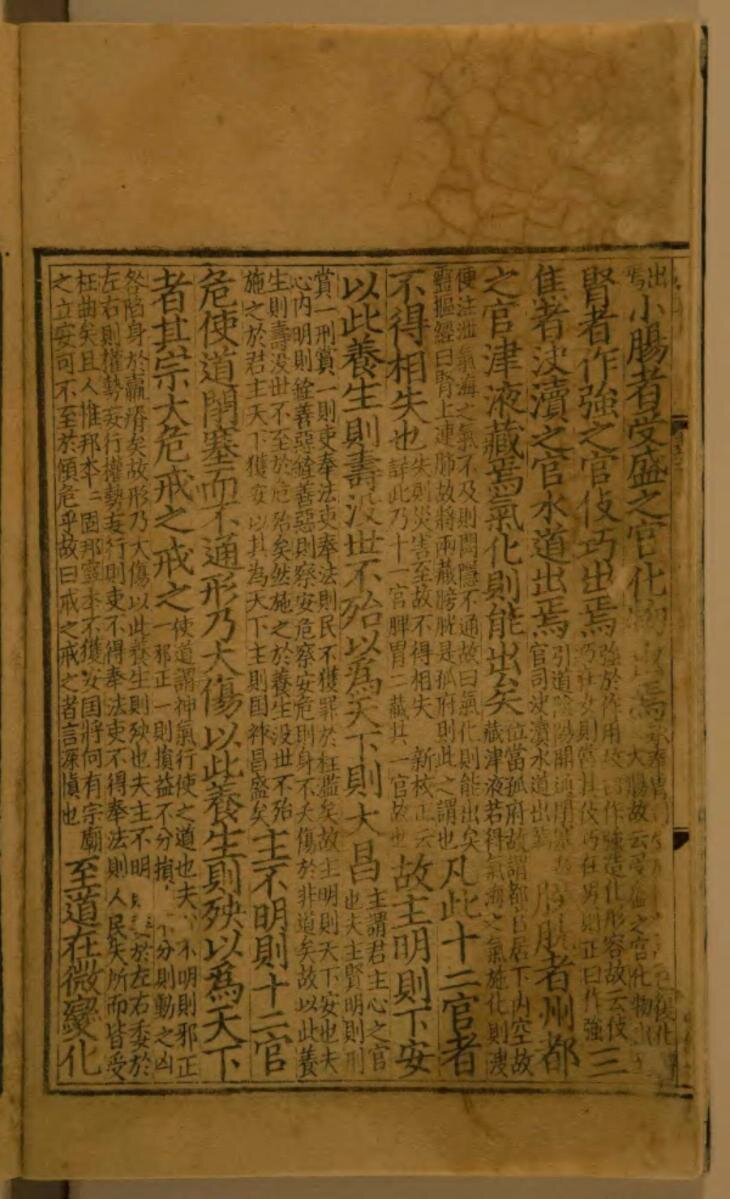 出
焉
小腸者受盛之官化物出焉
承奉胃司
大腸故云受盛之官化物出
腎者作強之官伎巧出焉
強於作用故曰作強造化形容故云伎
巧在女則當其伎巧在男則正曰作強
三
焦者決瀆之官水道出焉
引道陰陽開通閉塞故
官司決瀆水道出焉
膀胱者州都
之官津液藏焉氣化則能出矣
位當孤府故謂都官居下内空故
藏津液若得氣海之氣施化則溲
便注泄氣海之氣不及則閟隱不通故曰氣化則能出矣
靈樞經曰腎上連肺故將兩藏膀胱是孤府則此之謂也
凡此十二官者
不得相失也
失則災害至故不得相失 新校正云
詳此乃十一官脾胃二藏共一官故也
故主明則下安
以此養生則壽没世不殆以爲天下則大昌
主謂君主心之官
也夫主賢明則刑
賞一刑賞一則吏奉法吏奉法則民不獲罪於枉濫矣故主明則天下安也夫
心内明則銓善惡銓善惡則察安危察安危則身不夭傷於非道矣故以此養
生則壽没世不至於危殆矣然施之於養生没世不殆
施之於君主天下獲安以其為天下主則國祚昌盛矣
主不明則十二官
危使道閉塞而不通形乃大傷以此養生則殃以爲天下
者其宗大危戒之戒之
使道謂神氣行使之道也夫 不明則邪正
一邪正一則損益不分損 不分則動之凶
咎陷身於羸瘠矣故形乃大傷以此養生則殃也夫主不明 委於左右委於
左右則權勢妄行權勢妄行則吏不得奉法吏不得奉法則人民失所而皆受
枉曲矣且人惟邦本二固邦寧本不獲安国將何有宗廟
之立安可不至於傾危乎故曰戒之戒之者言深慎也
至道在微變化